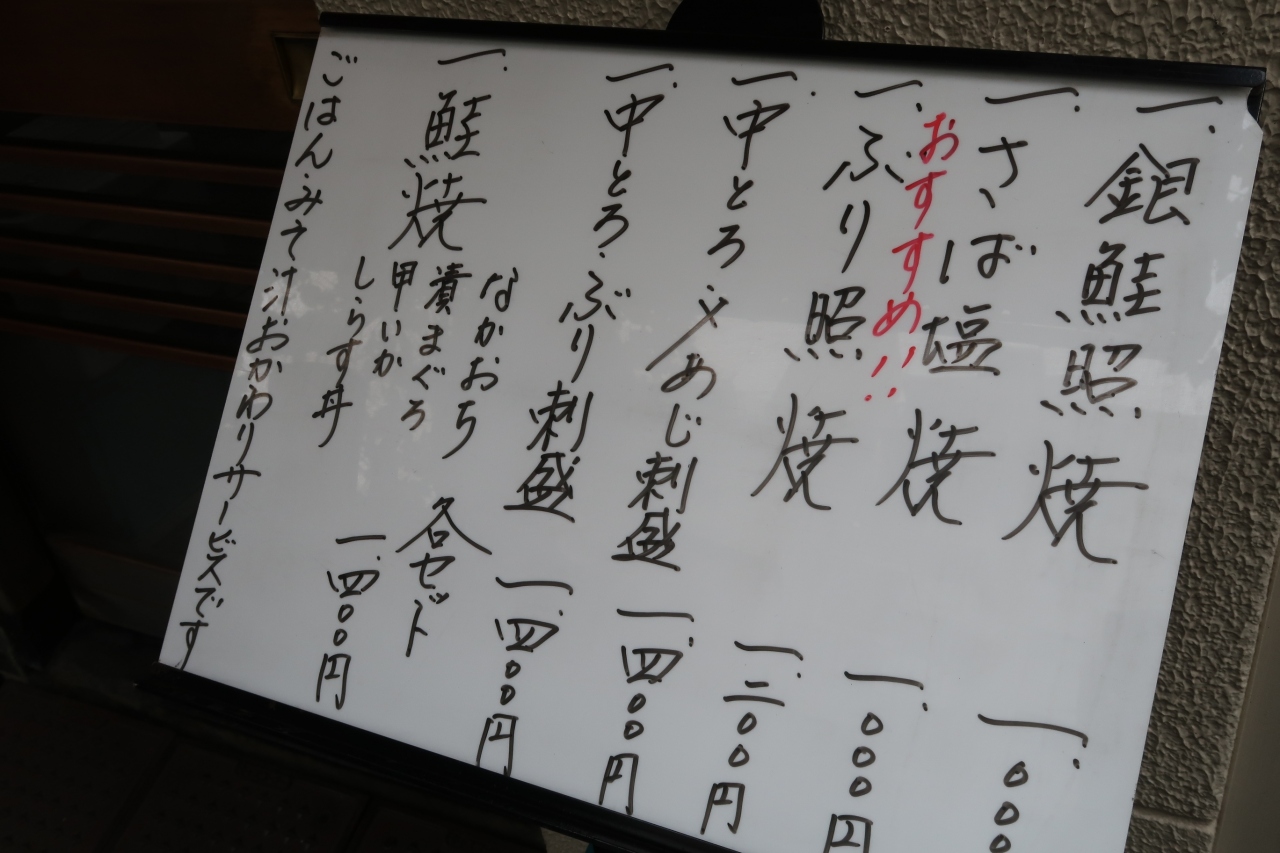 一.銀鮭照焼 一.000
一.さば塩焼 一.000円
おすすめ!!
一.ぶり照焼 一.二00円
一.中とろ・〆めじ刺盛 一.四00円
一.中とろ・ぶり刺盛 一.四00円
一.鮭焼 なかおち 漬まぐろ 甲いか しらす丼 各セット 一.四00円
ごはん・みそ汁おかわりサービスです